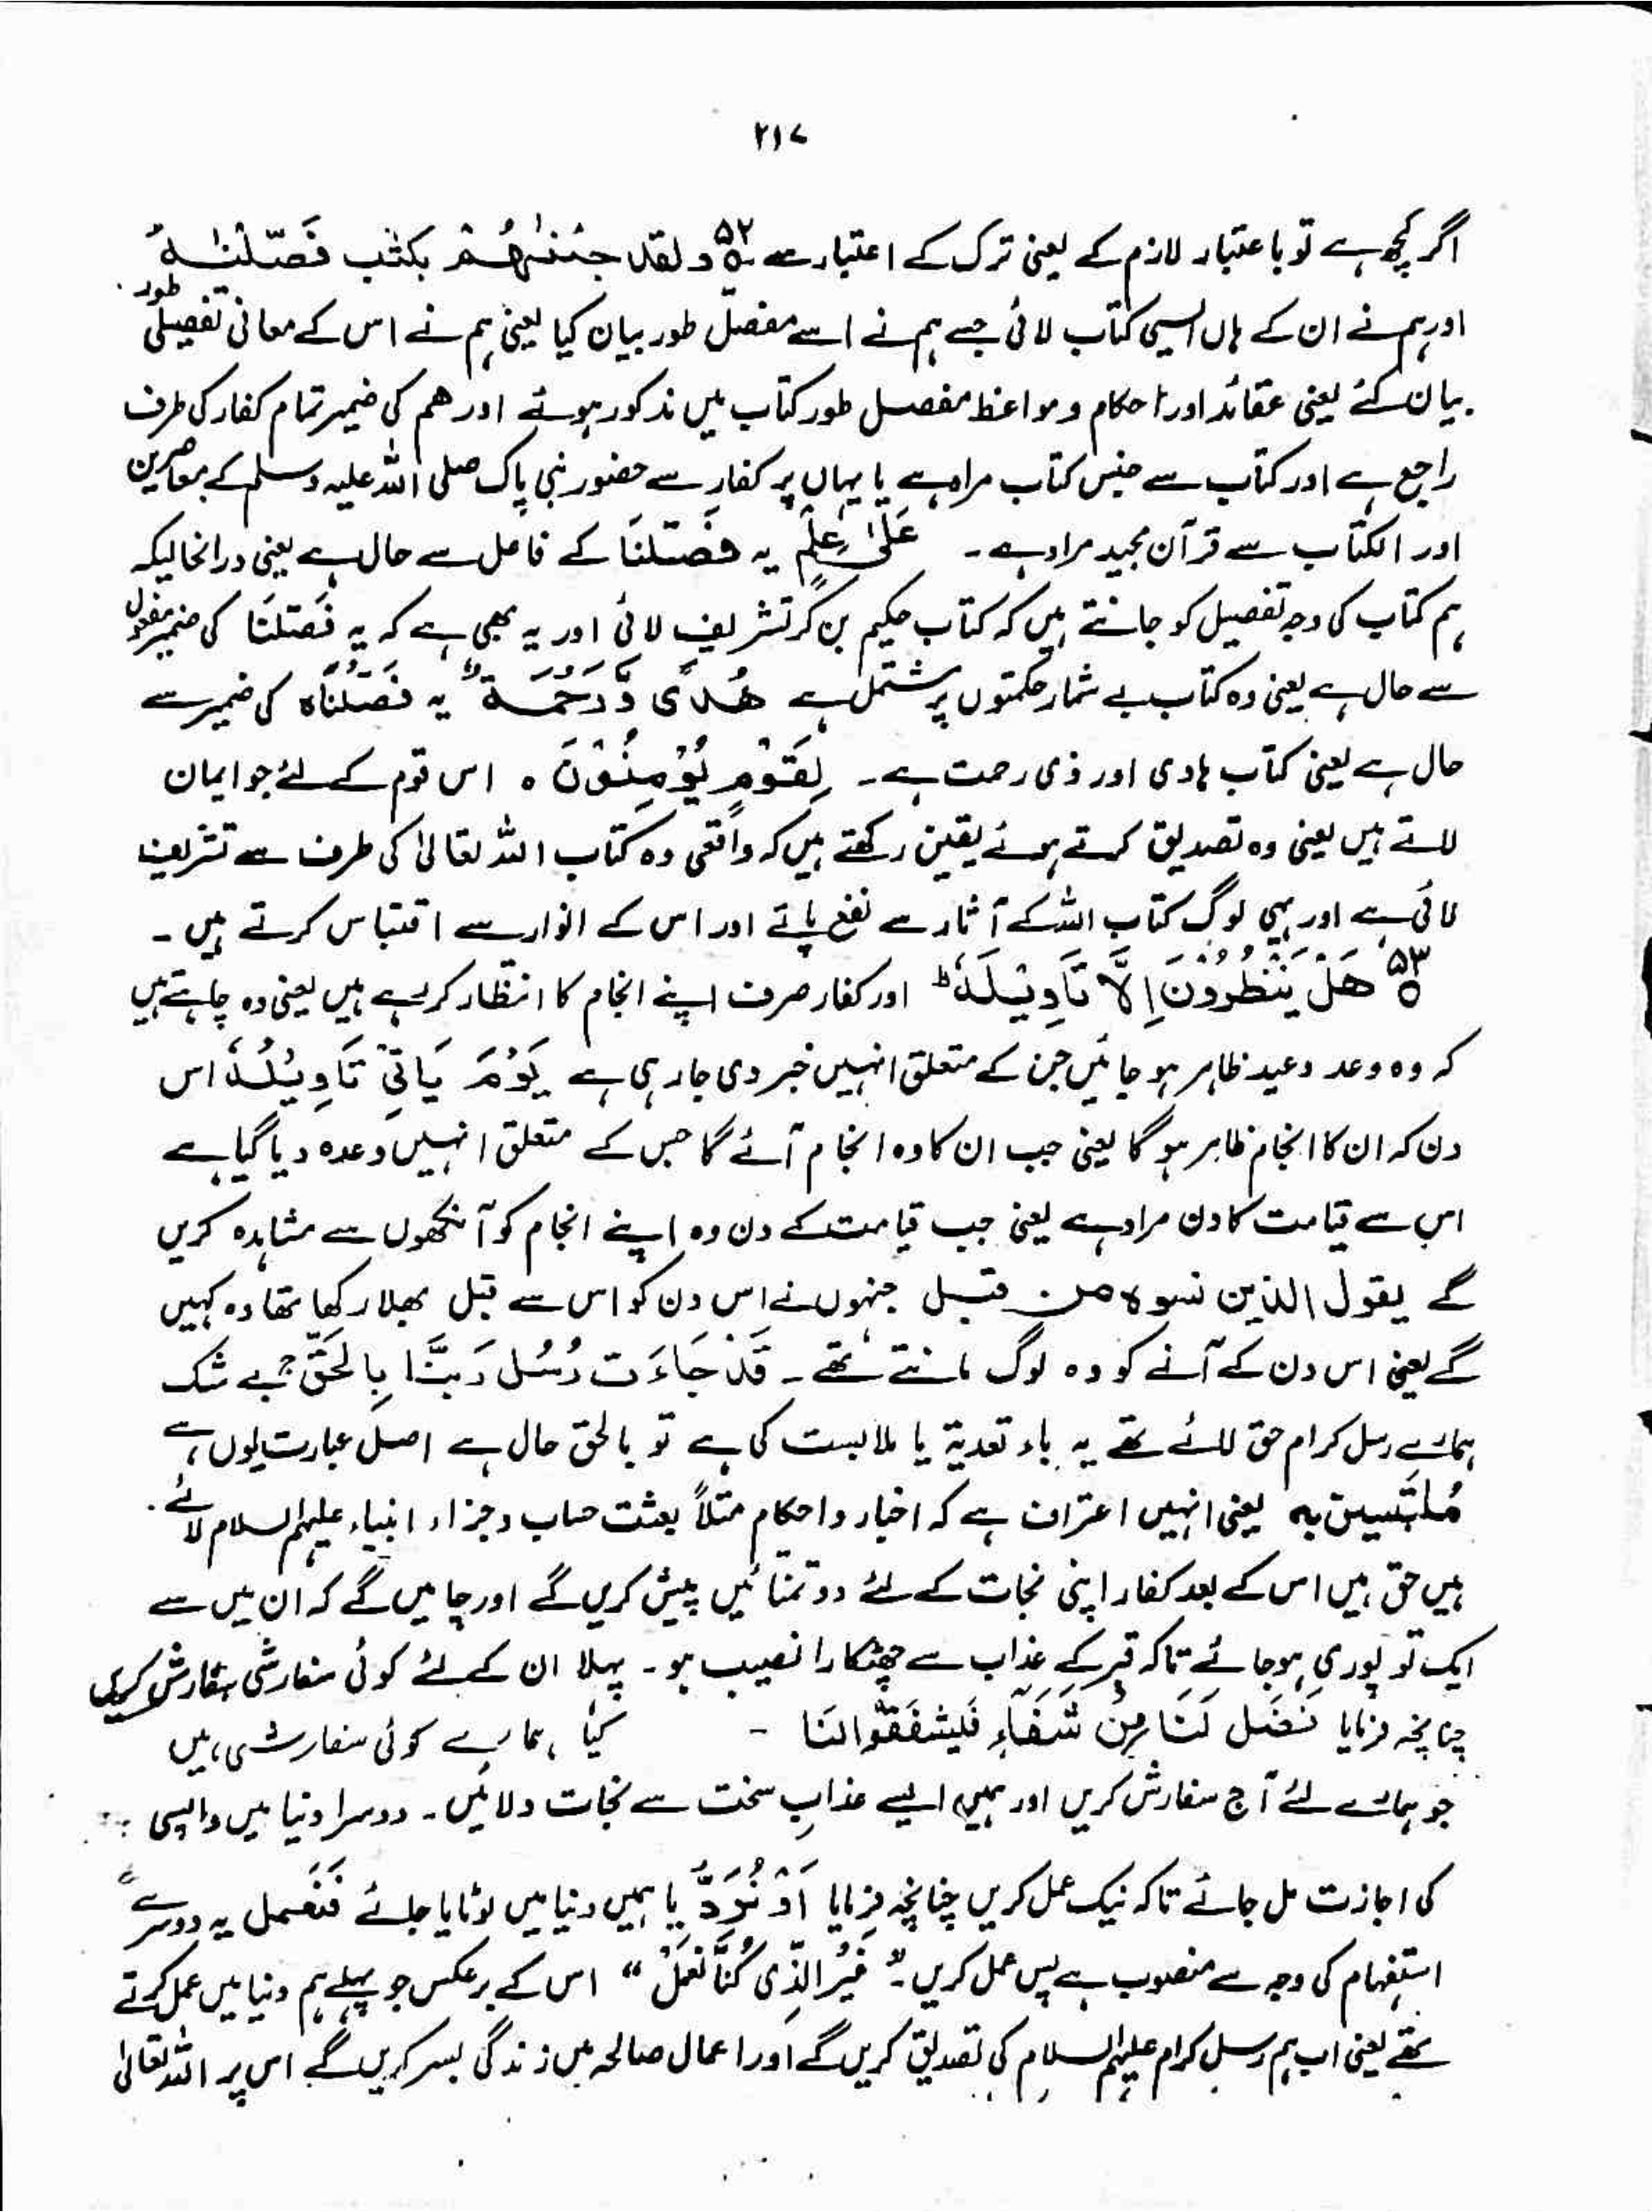 ۲۱۷
اگر کچھ ہے تو باعتبار لازم کے یعنی ترک کے اعتبار سے ۵۲ ولقد جئنٰھُمْ بکتٰب فَصّلْنٰہُ
اور ہم نے ان کے ہاں ایسی کتاب لائی جسے ہم نے اسے مفصّل طور بیان کیا یعنی ہم نے اس کے معانی تفصیلی طور
بیان کئے یعنی عقائد اور احکام و مواعظ مفصل طور کتاب میں مذکور ہوئے اور ھم کی ضمیر تمام کفار کی طرف
راجع ہے اور کتاب سے جنس کتاب مراد ہے یا یہاں پر کفار سے حضور نبی پاک صلی اللہ علیہ وسلم کے معاصرین
اور الکتاب سے قرآن مجید مراد ہے ۔ عَلٰی عِلْمٍ یہ فَصّلنَا کے فاعل سے حال ہے یعنی درانحالیکہ
ہم کتاب کی وجہ تفصیل کو جانتے ہیں کہ کتاب حکیم بن کر تشریف لائی اور یہ بھی ہے کہ یہ فَصّلنَا کی ضمیر مفعول
سے حال ہے یعنی وہ کتاب بے شمار حکمتوں پر مشتمل ہے ھُدًی وَّرَحْمَۃً یہ فَصّلْنَاہ کی ضمیر سے
حال ہے یعنی کتاب ہادی اور ذی رحمت ہے ۔ لِقَوْمٍ یُؤْمِنُوْنَ ہ اس قوم کے لئے جو ایمان
لاتے ہیں یعنی وہ تصدیق کرتے ہوئے یقین رکھتے ہیں کہ واقعی وہ کتاب اللہ تعالیٰ کی طرف سے تشریف
لائی ہے اور یہی لوگ کتاب اللہ کے آثار سے نفع پاتے اور اس کے انوار سے اقتباس کرتے ہیں ۔
۵۳ ھَلْ یَنْظُرُوْنَ اِلَّا تَاْوِیْلَہٗ ط اور کفار صرف اپنے انجام کا انتظار کر رہے ہیں یعنی وہ چاہتے ہیں
کہ وہ وعد وعید ظاہر ہو جائیں جن کے متعلق انہیں خبر دی جا رہی ہے یَوْمَ یَاْتِیْ تَاْوِیْلُہٗ اس
دن کہ ان کا انجام ظاہر ہوگا یعنی جب ان کا وہ انجام آئے گا جس کے متعلق انہیں وعدہ دیا گیا ہے
اس سے قیامت کا دن مراد ہے یعنی جب قیامت کے دن وہ اپنے انجام کو آنکھوں سے مشاہدہ کریں
گے یقول الذین نسوہ من قبل جنہوں نے اس دن کو اس سے قبل بھلا رکھا تھا وہ کہیں
گے یعنی اس دن کے آنے کو وہ لوگ مانتے تھے ۔ قَدْ جَاءَت رُسُل رَبِّنَا بِالحَقِّ ج بے شک
ہمارے رسل کرام حق لائے تھے یہ باء تعدیۃ یا ملابست کی ہے تو بالحق حال ہے اصل عبارت یوں ہے
مُلتَبِسین بہ یعنی انہیں اعتراف ہے کہ اخبار و احکام مثلاً بعثت حساب و جزاء انبیاء علیہم السلام لائے
ہیں حق ہیں اس کے بعد کفار اپنی نجات کے لئے دو تمنائیں پیش کریں گے اور چاہیں گے کہ ان میں سے
ایک تو پوری ہو جائے تاکہ قبر کے عذاب سے چھٹکارا نصیب ہو ۔ پہلا ان کے لئے کوئی سفارشی سفارش کریں
چنانچہ فرمایا فَھَل لَنَا مِنْ شُفَعَاءِ فَلیشفَعُوالنَا - کیا ہمارے کوئی سفارشی ہیں
جو ہمارے لئے آج سفارش کریں اور ہمیں ایسے عذابِ سخت سے نجات دلائیں ۔ دوسرا دنیا میں واپسی
کی اجازت مل جائے تاکہ نیک عمل کریں چنانچہ فرمایا اَوْ نُرَدُّ یا ہمیں دنیا میں لوٹایا جائے فَنَعْمل یہ دوسرے
استفہام کی وجہ سے منصوب ہے پس عمل کریں ۔ "غَیْرَ الَّذِی کُنَّا نَعْمَلُ" اس کے برعکس جو پہلے ہم دنیا میں عمل کرتے
تھے یعنی اب ہم رسل کرام علیہم السلام کی تصدیق کریں گے اور اعمال صالحہ میں زندگی بسر کریں گے اس پر اللہ تعالیٰ